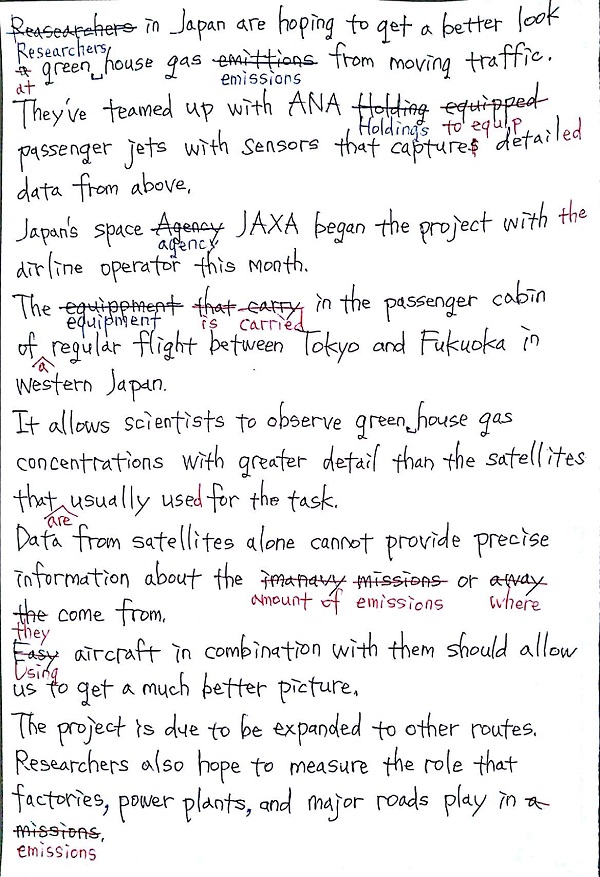 Reasearchers in Japan are hoping to get a better look
Researchers
a green house gas emittions from moving traffic.
at emissions
They've teamed up with ANA Holding equipped
Holdings to equip
passenger jets with sensors that captures detailed
data from above.
Japan's space Agency JAXA began the project with the
agency
airline operator this month.
The equippment that carry in the passenger cabin
equipment is carried
of regular flight between Tokyo and Fukuoka in
a
western Japan.
It allows scientists to observe green house gas
concentrations with greater detail than the satellites
that usually used for the task.
are
Data from satellites alone cannot provide precise
information about the imanavy missions or away
amount of emissions where
the come from.
they
Easy aircraft in combination with them should allow
Using
us to get a much better picture.
The project is due to be expanded to other routes.
Researchers also hope to measure the role that
factories, power plants, and major roads play in a
missions.
emissions